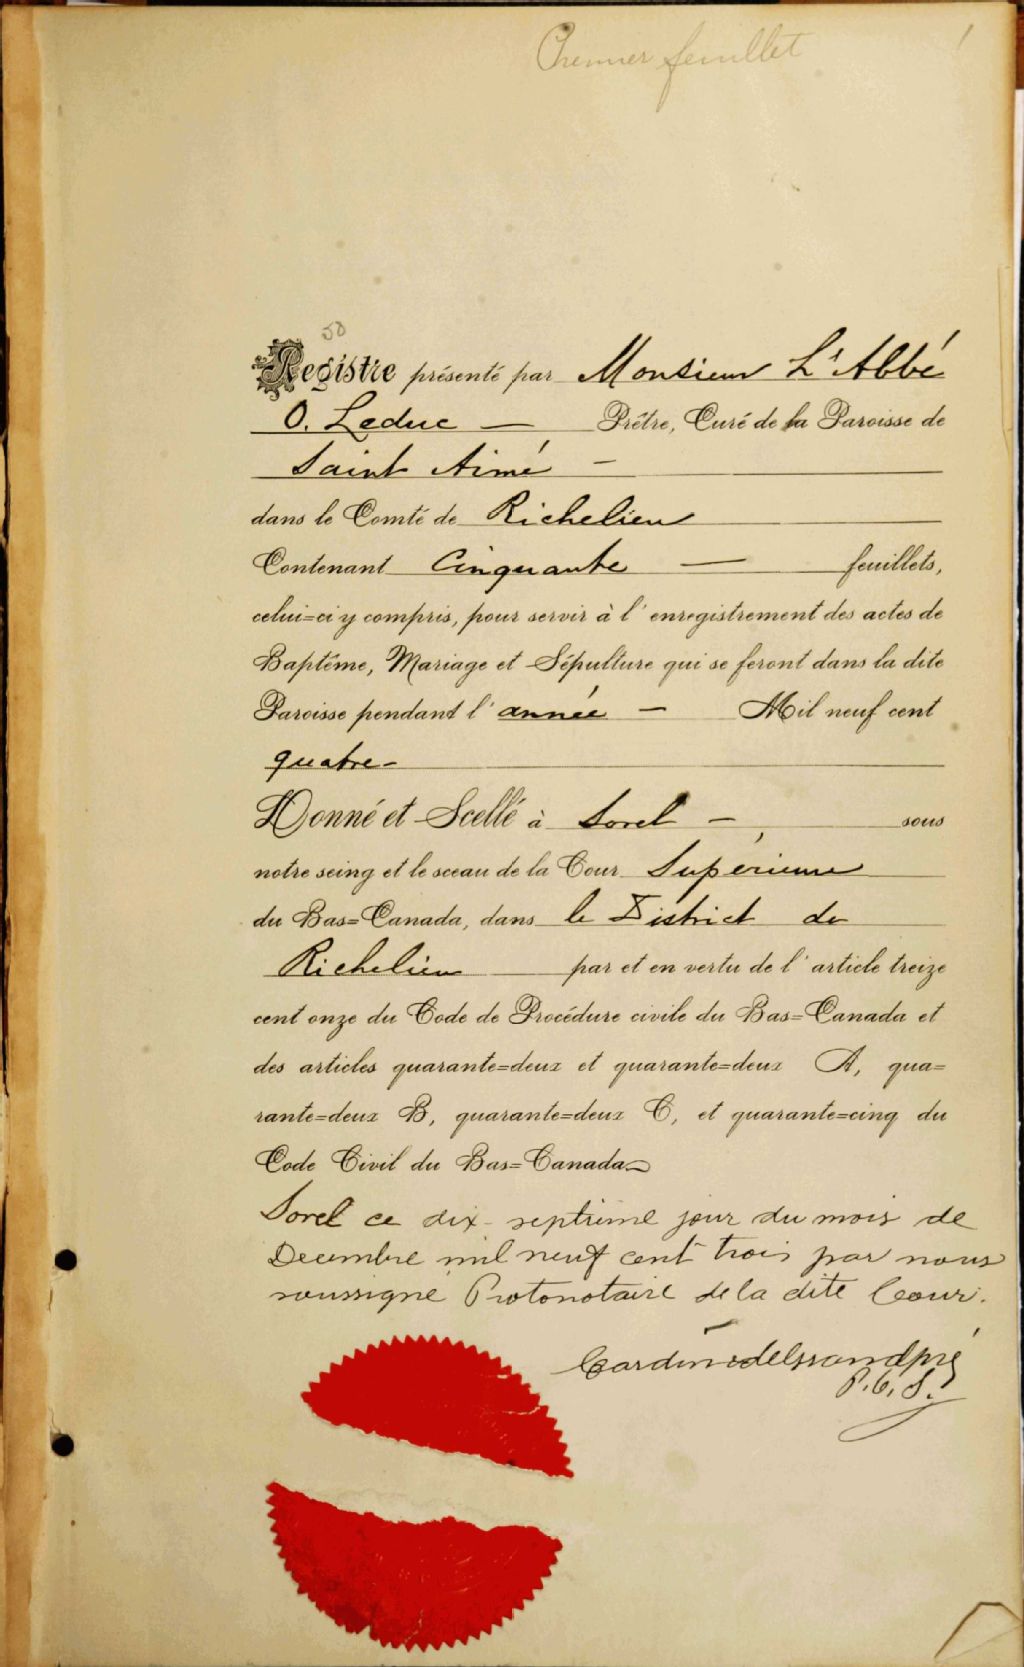 Premier feuillet
50
Registre présenté par Monsieur L'Abbé
O. Leduc — Prêtre, Curé de la Paroisse de
Saint Aimé —
dans le Comté de Richelieu
Contenant Cinquante — feuillets,
celui=ci y compris, pour servir à l'enregistrement des actes de
Baptême, Mariage et Sépulture qui se feront dans la dite
Paroisse pendant l'année — Mil neuf cent
quatre -
Donné et Scellé à Sorel — sous
notre seing et le sceau de la Cour Supérieure
du Bas=Canada, dans le District de
Richelieu par et en vertu de l'article treize
cent onze du Code de Procédure civile du Bas=Canada et
des articles quarante=deux et quarante=deux A, qua=
rante=deux B, quarante=deux C, et quarante=cinq du
Code Civil du Bas=Canada
Sorel ce dix-septième jour du mois de
Decembre mil neuf cent trois par nous
soussigné Protonotaire de la dite Cour.
P.C.S.